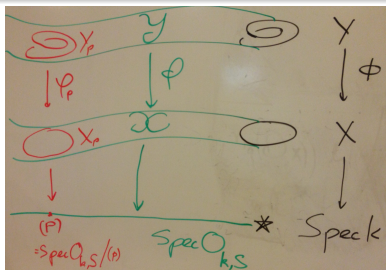 Y_p 𝒴 Y
φ_p φ ϕ
X_p 𝒳 X
(p) * Spec k
=Spec O_{k,S}/(p) Spec O_{k,S}